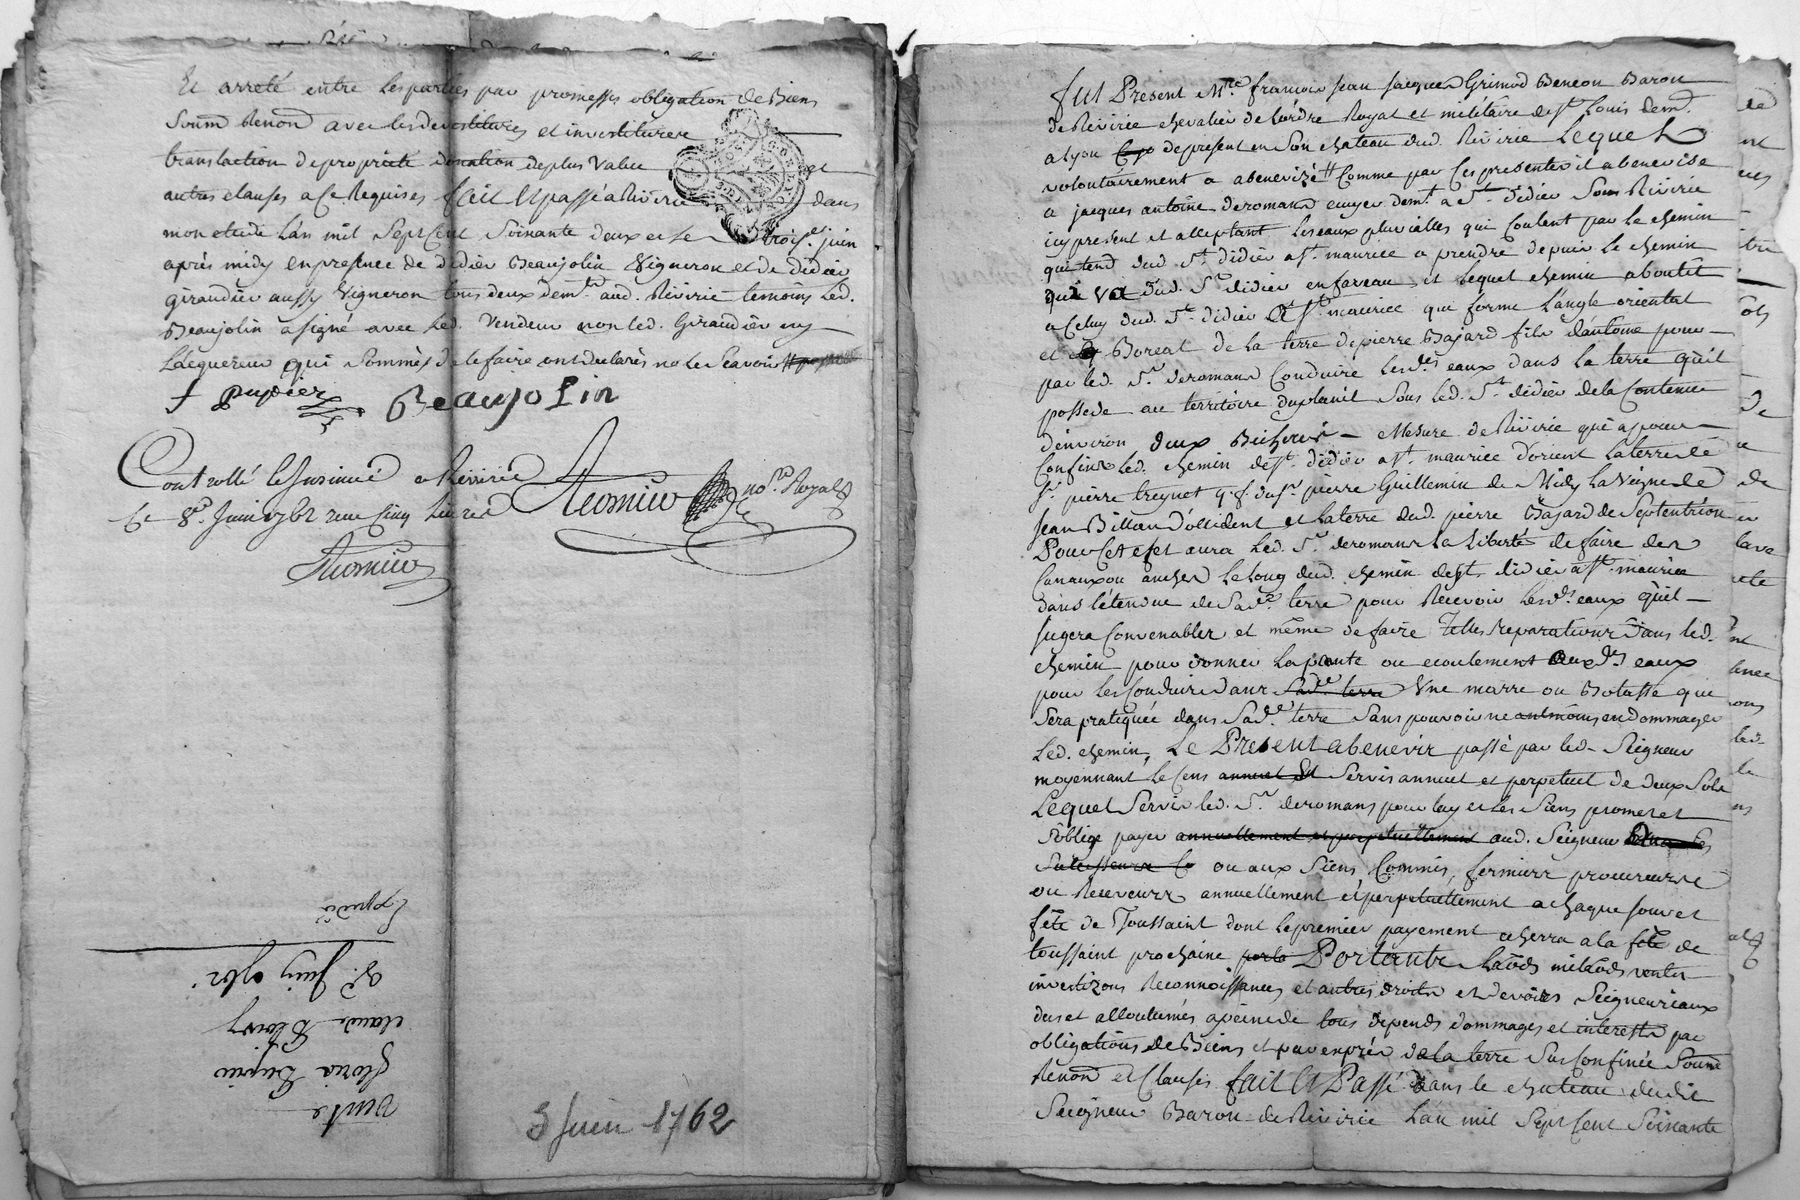 Et arreté entre les parties par promesses obligation de Biens
Soum Renon avec les devestitures et investitures
translaction de propriété donation de plus value et
autres clauses a ce Requises fait Et passé a Rivirie dans
mon etude L'an mil Sept Cent Soixante deux et le trois.e juin
après midy en presence de didier Beaujolin Vigneron et de didier
girandier aussy Vigneron tous deux dem.ts aud. Rivirie temoins led.
Beaujolin a signé avec led. Vendeur non led. Girandier ny
L'acquereur qui Sommés de le faire ont declarés ne le Scavoir
f pupier Beaujolin
Controllé et Insinué a Rivirie
Ce 8.e Juin 1762 reçu Cinq livres
no.re Royal
Expedié
8.e Juin 1762
claude
pupier
vente
3 Juin 1762
fut Present M.re francois Jean Jacques Grimod Beneon Baron
de Rivirie chevalier de L'ordre Royal et militaire de S.t Louis dem.t
a Lyon de present en Son chateau dud. Rivirie Lequel
volontairement a abenevizé Comme par Ces presentes il abenevise
a jacques antoine deromans ecuyer dem.t a S.t didier Sous Rivirie
icy present et acceptant Les eaux pluvialles qui Coulent par le chemin
qui tend dud. S.t didier a S.t maurice a prendre depuis le chemin
qui va dud. S.t didier en fareau et lequel chemin aboutit
a Celuy dud. S.t didier a S.t maurice qui forme L'angle oriental
et Boreal de la terre de pierre Bajard fils d'antoine pour
par led. S.r deromans Conduire lesd.es eaux dans la terre qu'il
possede au territoire duplanil Sous led. S.t didier de la Contenue
d'environ deux Bicherées Mesure de Rivirie qui a pour
Confins led. chemin de S.t didier a S.t maurice d'orient la terre de
S.r pierre treynet q. f. du S.r pierre Guillemin de Midy La Vigne de
Jean Billan d'occident et la terre dud. pierre Bajard de Septentrion
Pour Cet efet aura led. S.r deromans la Liberté de faire des
Canaux ou anches Le Long dud. chemin de S.t didier a S.t maurice
dans l'etendue de Sad.e terre pour Recevoir lesd.es eaux qu'il
jugera Convenables et même de faire Telles reparations dans led.
chemin pour donner la pante ou ecoulement auxd.es eaux
pour les Conduire dans Sad.e terre Une marre ou Botasse qui
Sera pratiquée dans Sad.e terre Sans pouvoir neantmoins endommager
Led. chemin, Le Present abenevis passé par led. Seigneur
moyennant le Cens annuel Et Servis annuel et perpetuel de deux Sols
Lequel Servis led. S.r deromans pour luy et les Siens promet et
S'oblige payer annuellement et perpetuellement aud. Seigneur
Successeurs ou aux Siens Commis, fermiers procureurs
ou Receveurs annuellement et perpetuellement a chaque jour et
fête de Toussaint dont le premier payement echerra a la fête de
toussaint prochaine Portant Laods milaods ventes
investizons Reconnoissances et autres droits et devoirs Seigneuriaux
dus et accoutumés a peine de tous depends dommages et interests par
obligations de Biens et par exprès de la terre Sus Confinée Soum
Renon et Clauses fait Et Passé dans le chateau dudit
Seigneur Baron de Rivirie L'an mil Sept Cent Soixante